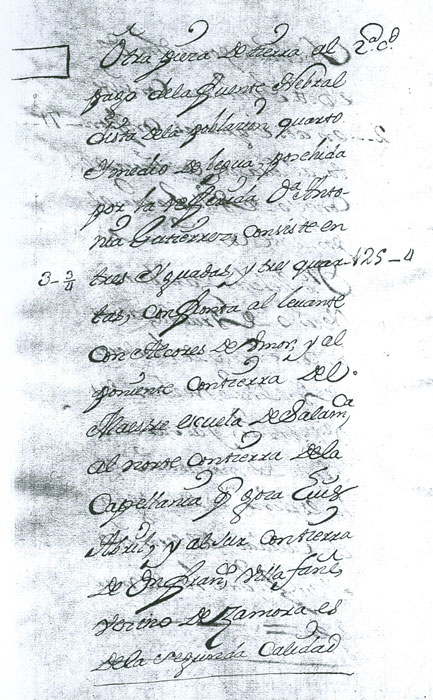 Otra pieza de tierra al 2ª cd
pago dela Fuente Nebral
dista dela poblazon quarto
y medio de legua, posehida
por la referida Dª Anto-
nia Gutierrez, consiste en
3-3/4 tres Yguadas, y tres quar- 125-4
tas, confronta al levante
con Alcores de Amor, y al
poniente con tierra del
Maestre escuela de Salamca
al norte con tierra dela
Capellania q goza Luis
Abril, y al sur con tierra
de Dn Franco Villafañe
vecino de Zamora es
dela segunda Calidad